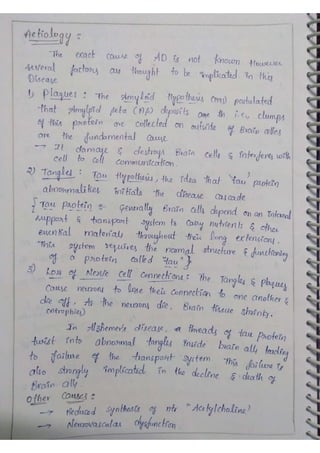 Aetiology :
The exact cause of AD is not known However
several factors are thought to be implicated in this
Disease
1) Plaques : The Amyloid Hypothesis postulated
that Amyloid beta (Aβ) deposits are th i.e, clumps
of this protein are collected on outside of Brain cells
are the fundamental cause
→ It damage & destroys Brain cells & interferes with
cell to cell communication.
2) Tangles : Tau Hypothesis, the idea that 'tau' protein
abnormalities initiats the disease cascade
{ Tau protein :- Generally Brain cells depend on an internal
support & transport system to carry nutrients & other
essential materials throughout their long extensions.
This system requires the normal structure & functioning
of a protein called "Tau" }
3) Loss of Nerve Cell Connections : The Tangles & Plaques
cause neurons to lose their connection to one another &
die off. As the neurons die, Brain tissue shrinks.
(atrophies)
In Alzhemer's disease, threads of tau protein
twist into abnormal tangles inside brain cells leading
to failure of the transport system This failure is
also strongly implicated in the decline & death of
Brain cells
Other causes :
→ Reduced synthesis of ntr "Acetylcholine"
→ Neurovascular dysfunction